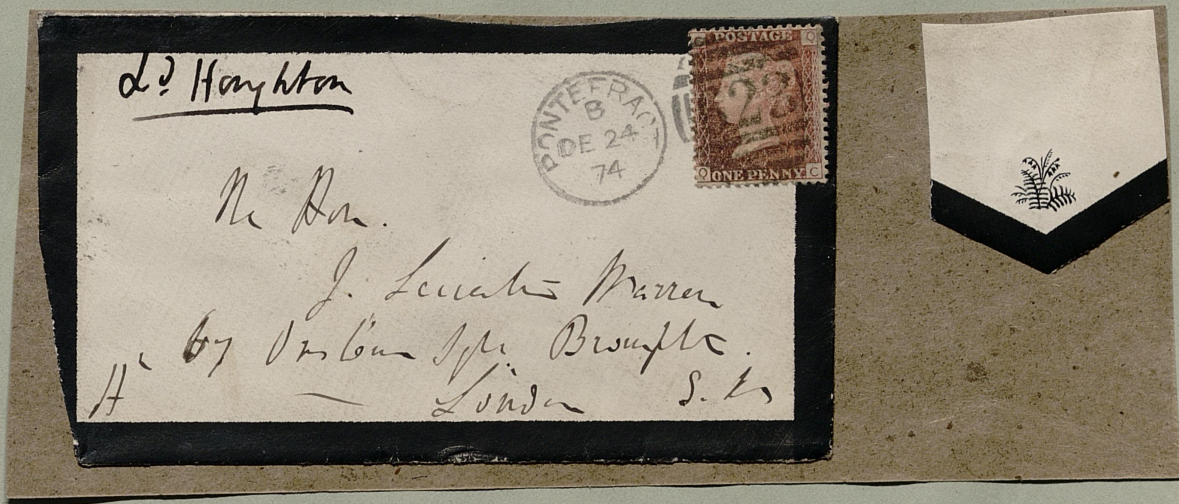 Ld Houghton
POSTAGE
Q
PONTEFRACT
B
DE 24
74
Q ONE PENNY C
The Hon.
J. Leicester Warren
67 Onslow Sqre Brompton.
London S.W.
H